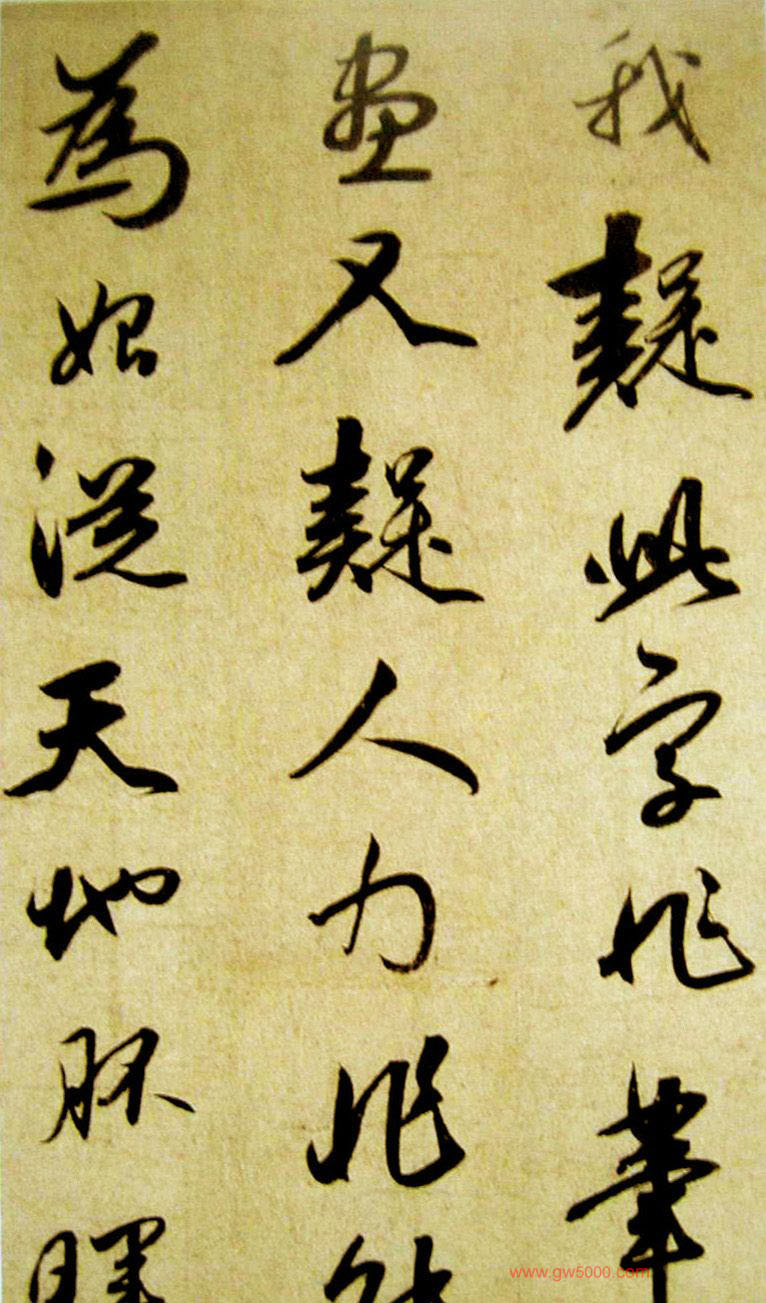 我疑此字非筆
畫又疑人力非能
為始從天地胚
www.gw5000.com